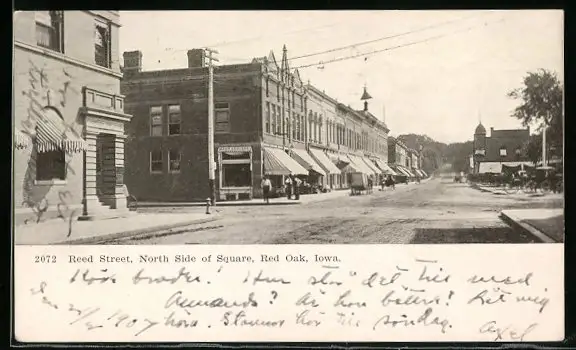 2072 Reed Street, North Side of Square, Red Oak, Iowa.
Käre broder! Hur står det till med
Amanda? Är hon bättre? Låt mig
höra. Stannar här till söndag.
Axel